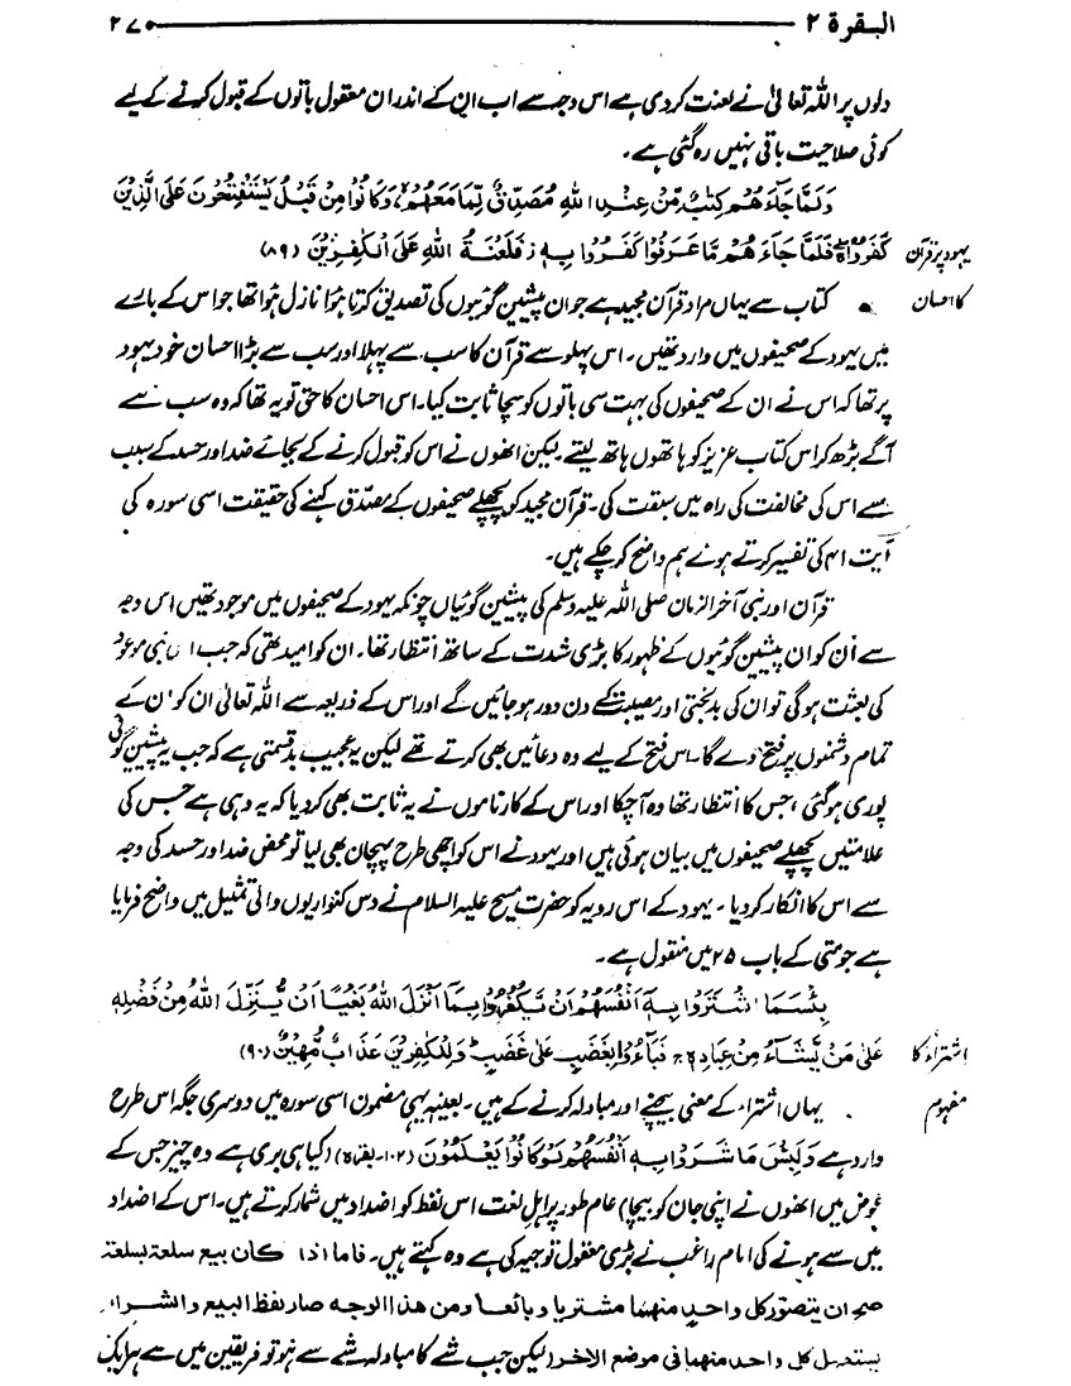 البقرة ٢ ۲۷۰
دلوں پر اللہ تعالیٰ نے لعنت کر دی ہے اس وجہ سے اب ان کے اندر ان معقول باتوں کے قبول کرنے کے لیے
کوئی صلاحیت باقی نہیں رہ گئی ہے۔
وَلَمَّا جَآءَهُمْ كِتٰبٌ مِّنْ عِنْدِ اللّٰهِ مُصَدِّقٌ لِّمَا مَعَهُمْ وَكَانُوْا مِنْ قَبْلُ يَسْتَفْتِحُوْنَ عَلَى الَّذِيْنَ
یہود پر قرآن كَفَرُوْا فَلَمَّا جَآءَهُمْ مَّا عَرَفُوْا كَفَرُوْا بِهٖ فَلَعْنَةُ اللّٰهِ عَلَى الْكٰفِرِيْنَ (۸۹)
کا احسان کتاب سے یہاں مراد قرآن مجید ہے جو ان پیشین گوئیوں کی تصدیق کرتا ہوا نازل ہوا تھا جو اس کے بارے
میں یہود کے صحیفوں میں وارد تھیں۔ اس پہلو سے قرآن کا سب سے پہلا اور سب سے بڑا احسان خود یہود
پر تھا کہ اس نے ان کے صحیفوں کی بہت سی باتوں کو سچا ثابت کیا۔ اس احسان کا حق تو یہ تھا کہ وہ سب سے
آگے بڑھ کر اس کتاب عزیز کو ہاتھوں ہاتھ لیتے۔ لیکن انھوں نے اس کو قبول کرنے کے بجائے ضد اور حسد کے سبب
سے اس کی مخالفت کی راہ میں سبقت کی۔ قرآن مجید کو پچھلے صحیفوں کے مصدّق کہنے کی حقیقت اسی سورہ کی
آیت ۴۱ کی تفسیر کرتے ہوئے ہم واضح کر چکے ہیں۔
قرآن اور نبی آخر الزمان صلی اللہ علیہ وسلم کی پیشین گوئیاں چونکہ یہود کے صحیفوں میں موجود تھیں اس وجہ
سے ان کو ان پیشین گوئیوں کے ظہور کا بڑی شدت کے ساتھ انتظار تھا۔ ان کو امید تھی کہ جب اس نبی موعود
کی بعثت ہوگی تو ان کی بدبختی اور مصیبت کے دن دور ہو جائیں گے اور اس کے ذریعہ سے اللہ تعالیٰ ان کو ان کے
تمام دشمنوں پر فتح دے گا۔ اس فتح کے لیے وہ دعائیں بھی کرتے تھے لیکن یہ عجیب بدقسمتی ہے کہ جب یہ پیشین گوئی
پوری ہو گئی، جس کا انتظار تھا وہ آ چکا اور اس کے کارناموں نے یہ ثابت بھی کر دیا کہ یہ وہی ہے جس کی
علامتیں پچھلے صحیفوں میں بیان ہوئی ہیں اور یہود نے اس کو اچھی طرح پہچان بھی لیا تو محض ضد اور حسد کی وجہ
سے اس کا انکار کر دیا۔ یہود کے اس رویہ کو حضرت مسیح علیہ السلام نے دس کنواریوں والی تمثیل میں واضح فرمایا
ہے جو متی کے باب ۲۵ میں منقول ہے۔
بِئْسَمَا اشْتَرَوْا بِهٖٓ اَنْفُسَهُمْ اَنْ يَّكْفُرُوْا بِمَآ اَنْزَلَ اللّٰهُ بَغْيًا اَنْ يُّنَزِّلَ اللّٰهُ مِنْ فَضْلِهٖ
اشتراء کا عَلٰى مَنْ يَّشَآءُ مِنْ عِبَادِهٖ ج فَبَآءُوْ بِغَضَبٍ عَلٰى غَضَبٍ وَلِلْكٰفِرِيْنَ عَذَابٌ مُّهِيْنٌ (۹۰)
مفہوم یہاں اشتراء کے معنی بیچنے اور مبادلہ کرنے کے ہیں۔ بعینہٖ یہی مضمون اسی سورہ میں دوسری جگہ اس طرح
وارد ہے وَلَبِئْسَ مَا شَرَوْا بِهٖٓ اَنْفُسَهُمْ لَوْ كَانُوْا يَعْلَمُوْنَ (۱۰۲۔ بقرہ) (کیا ہی بری ہے وہ چیز جس کے
عوض میں انھوں نے اپنی جان کو بیچا) عام طور پر اہل لغت اس لفظ کو اضداد میں شمار کرتے ہیں۔ اس کے اضداد
میں سے ہونے کی امام راغب نے بڑی معقول توجیہ کی ہے وہ کہتے ہیں۔ فاما اذا کان بیع سلعة بسلعة
صح ان یتصور کل واحد منھما مشتریا و بائعا و من ھذا الوجه صار لفظ البیع و الشراء
یستعمل کل واحد منھما فی موضع الاخر (لیکن جب شے کا مبادلہ شے سے ہو تو فریقین میں سے ہر ایک